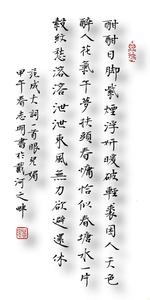 酣酣日脚紫煙浮妍暖破輕裘困人天色
醉人花氣午夢扶頭春慵恰似春塘水一片
縠紋愁溶溶泄泄東風無力欲避還休
范成大詞一首眼兒媚
甲午春志明書於戴河之畔